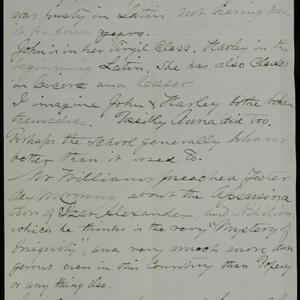 was rusty in Latin, not having used
it for four years.
John's in her Virgil Class. Harley in the
beginning Latin. She has also Classes
in Cicero and Caesar.
I imagine John & Harley both behave
themselves. Possibly Anna did too.
Perhaps the School generally behaves
better than it used to.
Mr Williams preached yester
day morning about the Assassina
tion of Czar Alexander, and Nihilism
which he thinks is the very "Mystery of
Iniquity" and very much more dan
gerous even in this Country than Popery
or any thing Else.